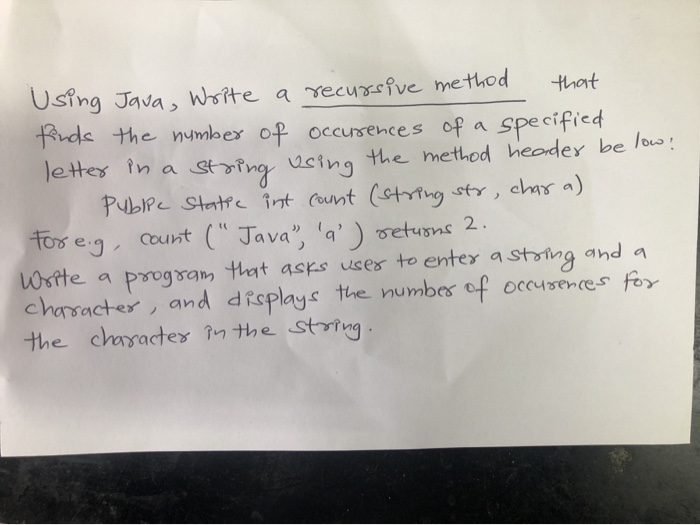 Using Java, Write a recursive method that
finds the number of occurences of a specified
letter in a string using the method header below:
Public Static int count (string str, char a)
For e.g, count ("Java", 'a') returns 2.
Write a program that asks user to enter a string and a
character, and displays the number of occurences for
the character in the string.